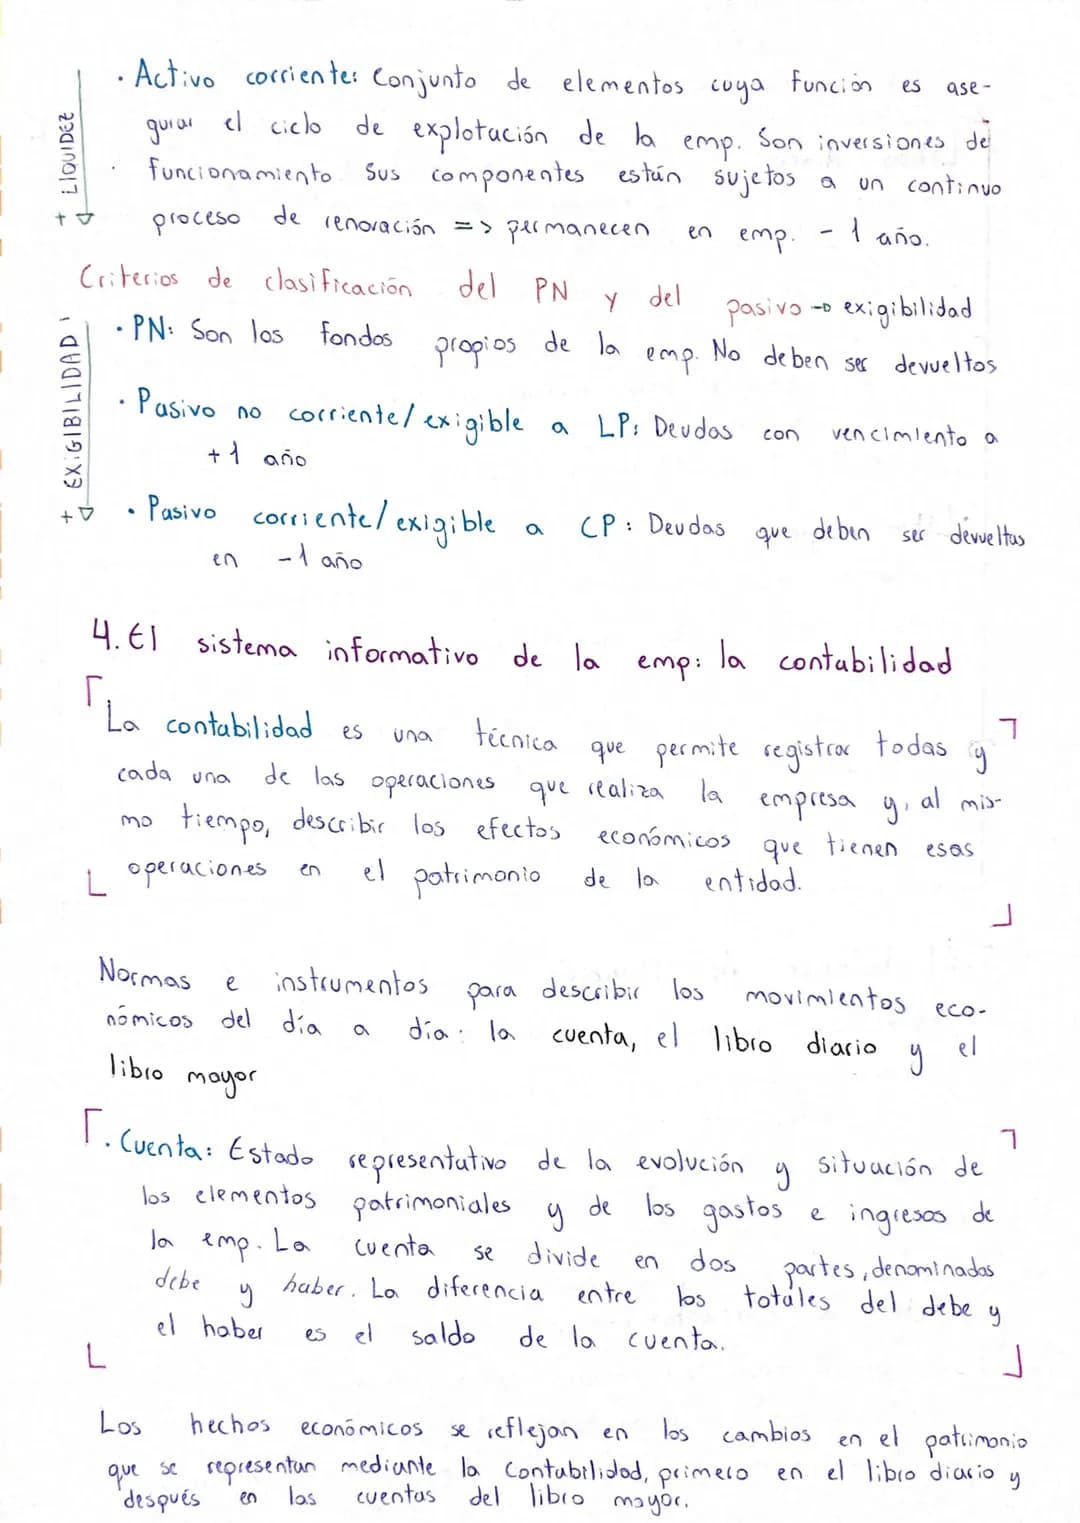 · Activo corriente: Conjunto de elementos cuya función es ase-
gurar el ciclo de explotación de la emp. Son inversiones de
funcionamiento. Sus componentes están sujetos a un continuo
proceso de renovación => permanecen en emp. - 1 año.
+ LIQUIDEZ
Criterios de clasificación del PN y del pasivo → exigibilidad
· PN: Son los fondos propios de la emp. No deben ser devueltos
· Pasivo no corriente/exigible a LP: Deudas con vencimiento a
+1 año
· Pasivo corriente/exigible a CP: Deudas que deben ser devueltas
en -1 año
+ EXIGIBILIDAD -
4. El sistema informativo de la emp: la contabilidad
La contabilidad es una técnica que permite registrar todas y
cada una de las operaciones que realiza la empresa y, al mis-
mo tiempo, describir los efectos económicos que tienen esas
operaciones en el patrimonio de la entidad.
Normas e instrumentos para describir los movimientos eco-
nómicos del día a día: la cuenta, el libro diario y el
libro mayor
· Cuenta: Estado representativo de la evolución y situación de
los elementos patrimoniales y de los gastos e ingresos de
la emp. La cuenta se divide en dos partes, denominadas
debe y haber. La diferencia entre los totales del debe y
el haber es el saldo de la cuenta.
Los hechos económicos se reflejan en los cambios en el patrimonio
que se representan mediante la Contabilidad, primero en el libro diario y
después en las cuentas del libro mayor.